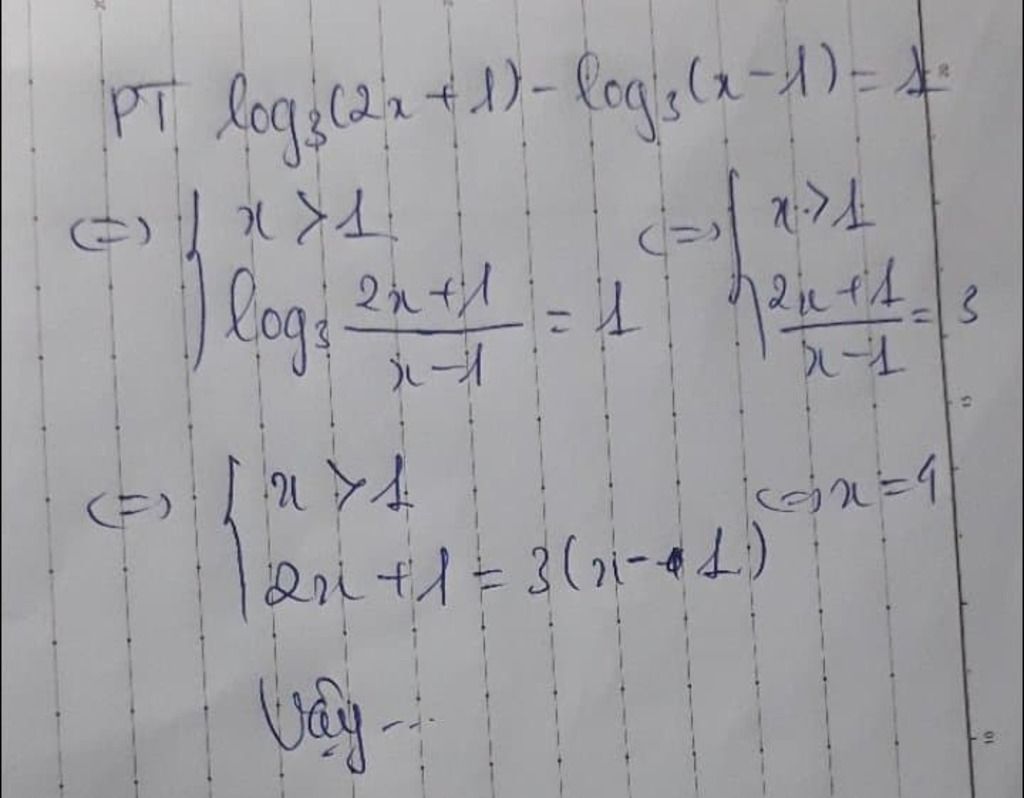 PT log₃(2x+1) - log₃(x-1) = 1
⇔ { x > 1 ⇔ { x > 1
log₃ (2x+1)/(x-1) = 1 (2x+1)/(x-1) = 3
⇔ { x > 1 ⇔ x = 4
2x + 1 = 3(x - 1)
Vậy ...